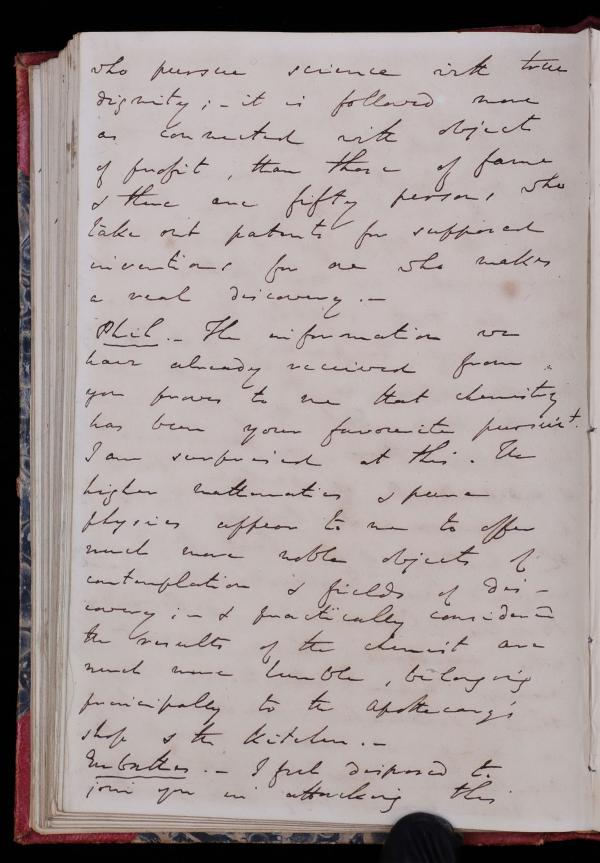 who pursue science with true
dignity; - it is followed more
as connected with objects
of profit, than those of fame
& there are fifty persons who
take out patents for supposed
inventions for one who makes
a real discovery. -
Phil. - The information we
have already received from
you proves to me that chemistry
has been your favorite pursuit.
I am surprised at this. The
higher mathematics & pure
physics appear to me to offer
much more noble objects of
contemplation & fields of dis-
covery; - & practically considered
the results of the chemist are
much more humble, belonging
principally to the apothecary's
shop & the kitchen. -
Eubathes. - I feel disposed to
join you in attacking this